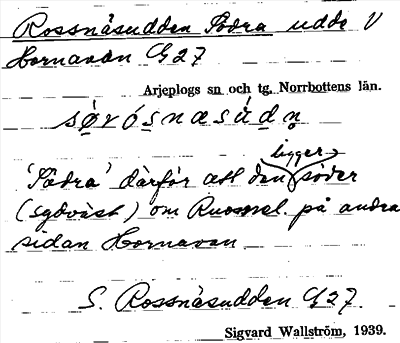 Rossnäsudden Södra udde V
Hornavan G27
Arjeplogs sn och tg. Norrbottens län.
'Södra' därför att den ligger söder
(sydväst) om Ruossel. på andra
sidan Hornavan
S. Rossnäsudden G27.
Sigvard Wallström, 1939.